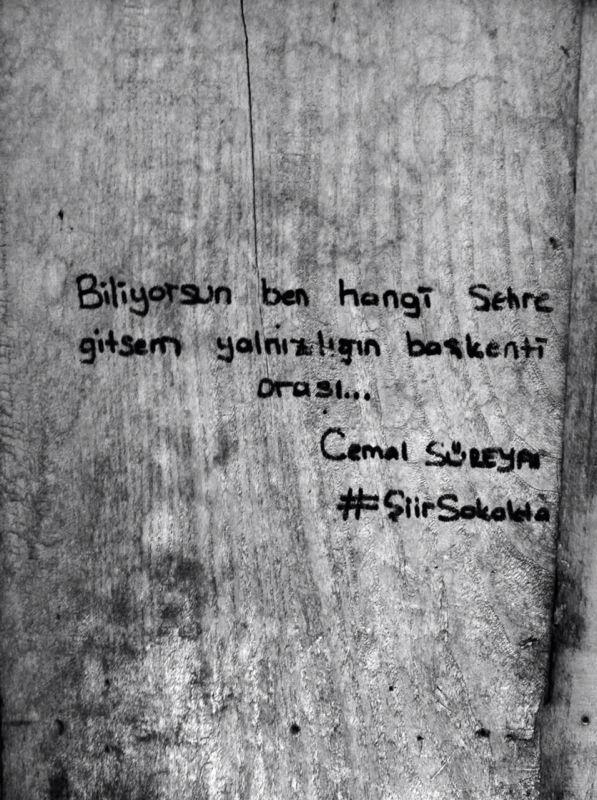 Biliyorsun ben hangi Sehre
gitsem yalnızlıgın başkenti
orası...
Cemal SÜREYA
#ŞiirSokakta